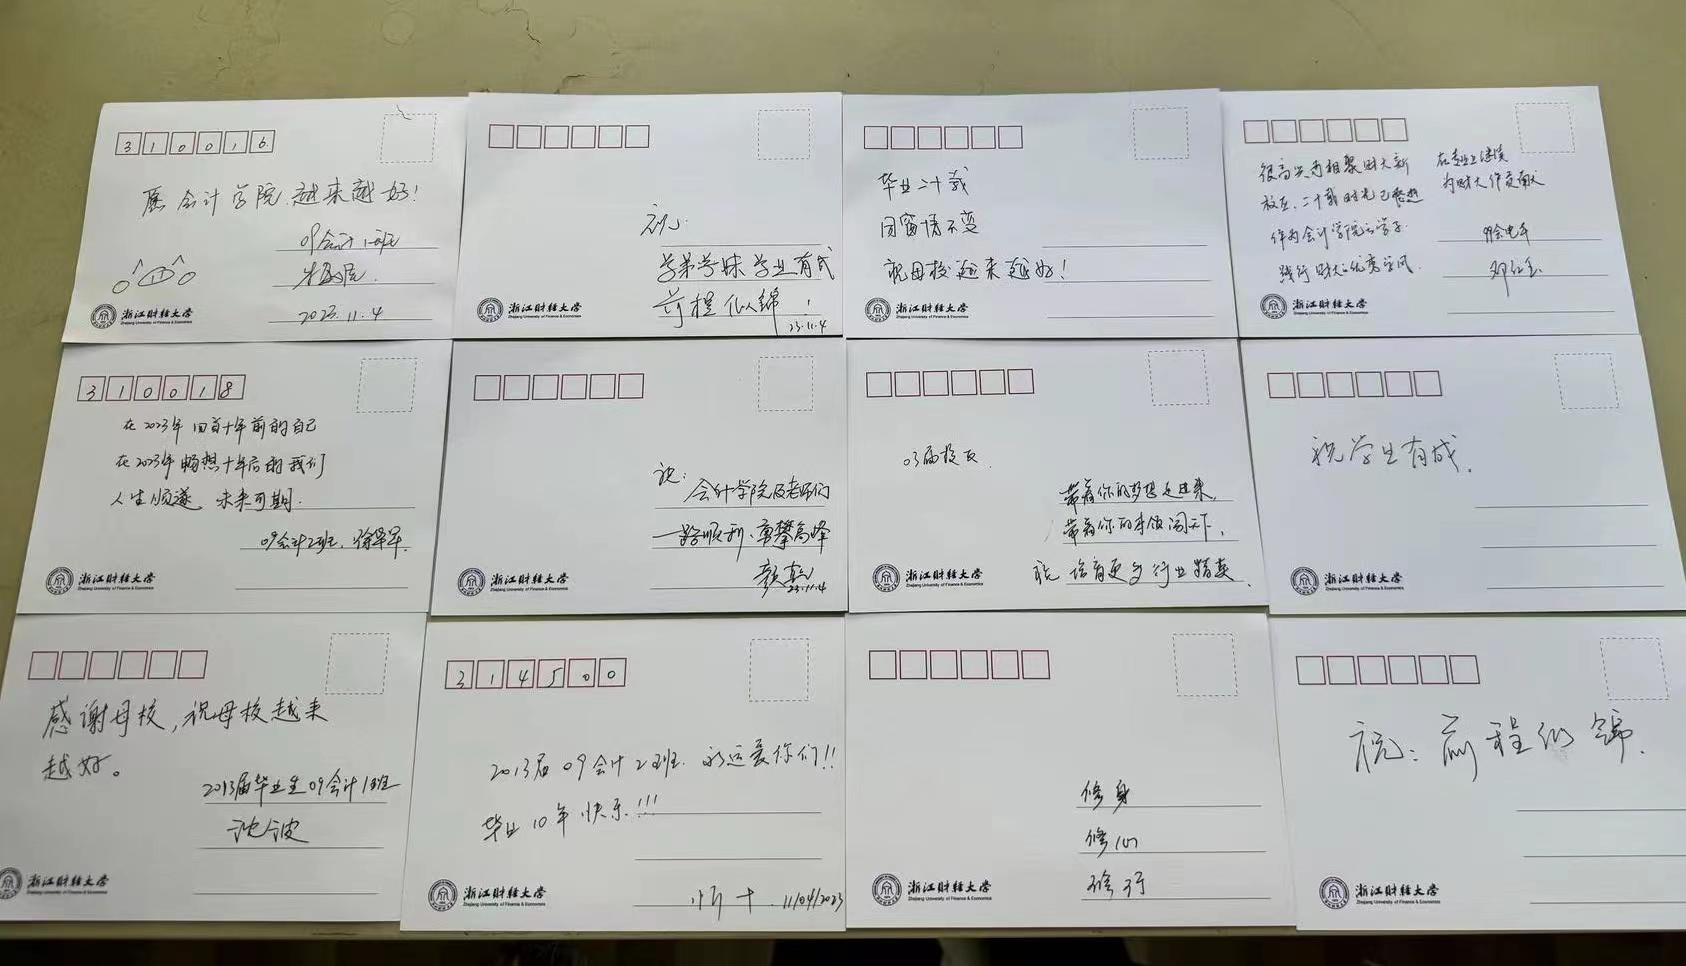 310016
愿会计学院越来越好!
09会计1班
2023.11.4
浙江财经大学
Zhejiang University of Finance & Economics
祝:
学弟学妹学业有成
前程似锦!
23.11.4
浙江财经大学
Zhejiang University of Finance & Economics
毕业二十载
同窗情不变
祝母校越来越好!
浙江财经大学
Zhejiang University of Finance & Economics
很高兴再相聚财大新
校区,二十载时光已悠然
作为会计学院的学子
践行财大的优秀学风
在专业上继续
为财大作贡献
99会电车
邓红玉
浙江财经大学
Zhejiang University of Finance & Economics
310018
在2023年回首十年前的自己
在2023年畅想十年后的我们
人生顺遂 未来可期.
09会计2班.
浙江财经大学
Zhejiang University of Finance & Economics
祝:
会计学院及老师们
一路顺利、勇攀高峰
23.11.4
浙江财经大学
Zhejiang University of Finance & Economics
03届校友.
带着你的梦想走进来,
带着你的本领闯天下,
祝培育更多行业精英.
浙江财经大学
Zhejiang University of Finance & Economics
祝学生有成.
浙江财经大学
Zhejiang University of Finance & Economics
感谢母校,祝母校越来
越好。
2013届毕业生09会计1班
沈波
浙江财经大学
Zhejiang University of Finance & Economics
314500
2013届09会计2班.永远爱你们!!
毕业10年快乐!!!
11/04/2023
浙江财经大学
Zhejiang University of Finance & Economics
修身
修心
修行
浙江财经大学
Zhejiang University of Finance & Economics
祝:前程似锦.
浙江财经大学
Zhejiang University of Finance & Economics